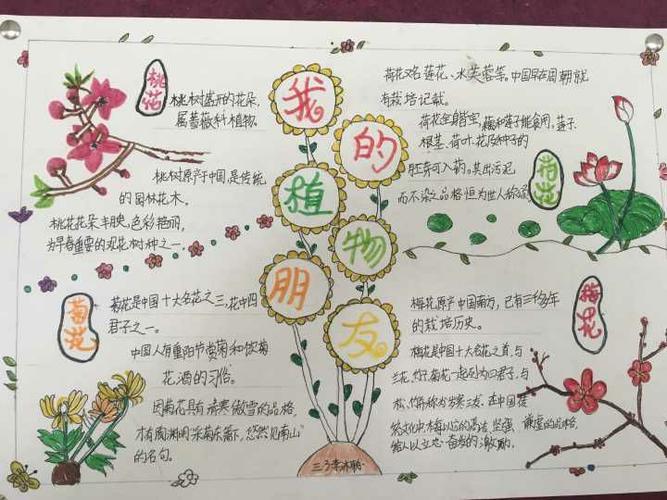 我的植物朋友
桃花
桃树盛开的花朵,
属蔷薇科植物.
桃树原产中国,是传统
的园林花木。
桃花花朵丰腴,色彩艳丽,
为早春重要的观花树种之一.
荷花
荷花又名莲花、水芙蓉等。中国早在周朝就
有栽培记载。
荷花全身皆宝,藕和莲子能食用,莲子、
根茎、荷叶、花及种子的
胚芽可入药。其出污泥
而不染之品格恒为世人称颂
菊花
菊花是中国十大名花之三,花中四
君子之一。
中国人有重阳节赏菊和饮菊
花酒的习俗。
因菊花具有清寒傲雪的品格,
才有陶渊明"采菊东篱下,悠然见南山"
的名句。
梅花
梅花原产中国南方,已有三千多年
的栽培历史。
梅花是中国十大名花之首,与
兰花、竹子、菊花一起列为四君子,与
松、竹并称为岁寒三友.在中国传
统文化中,梅以它的高洁、坚强、谦虚的品格,
给人以立志奋发的激励。